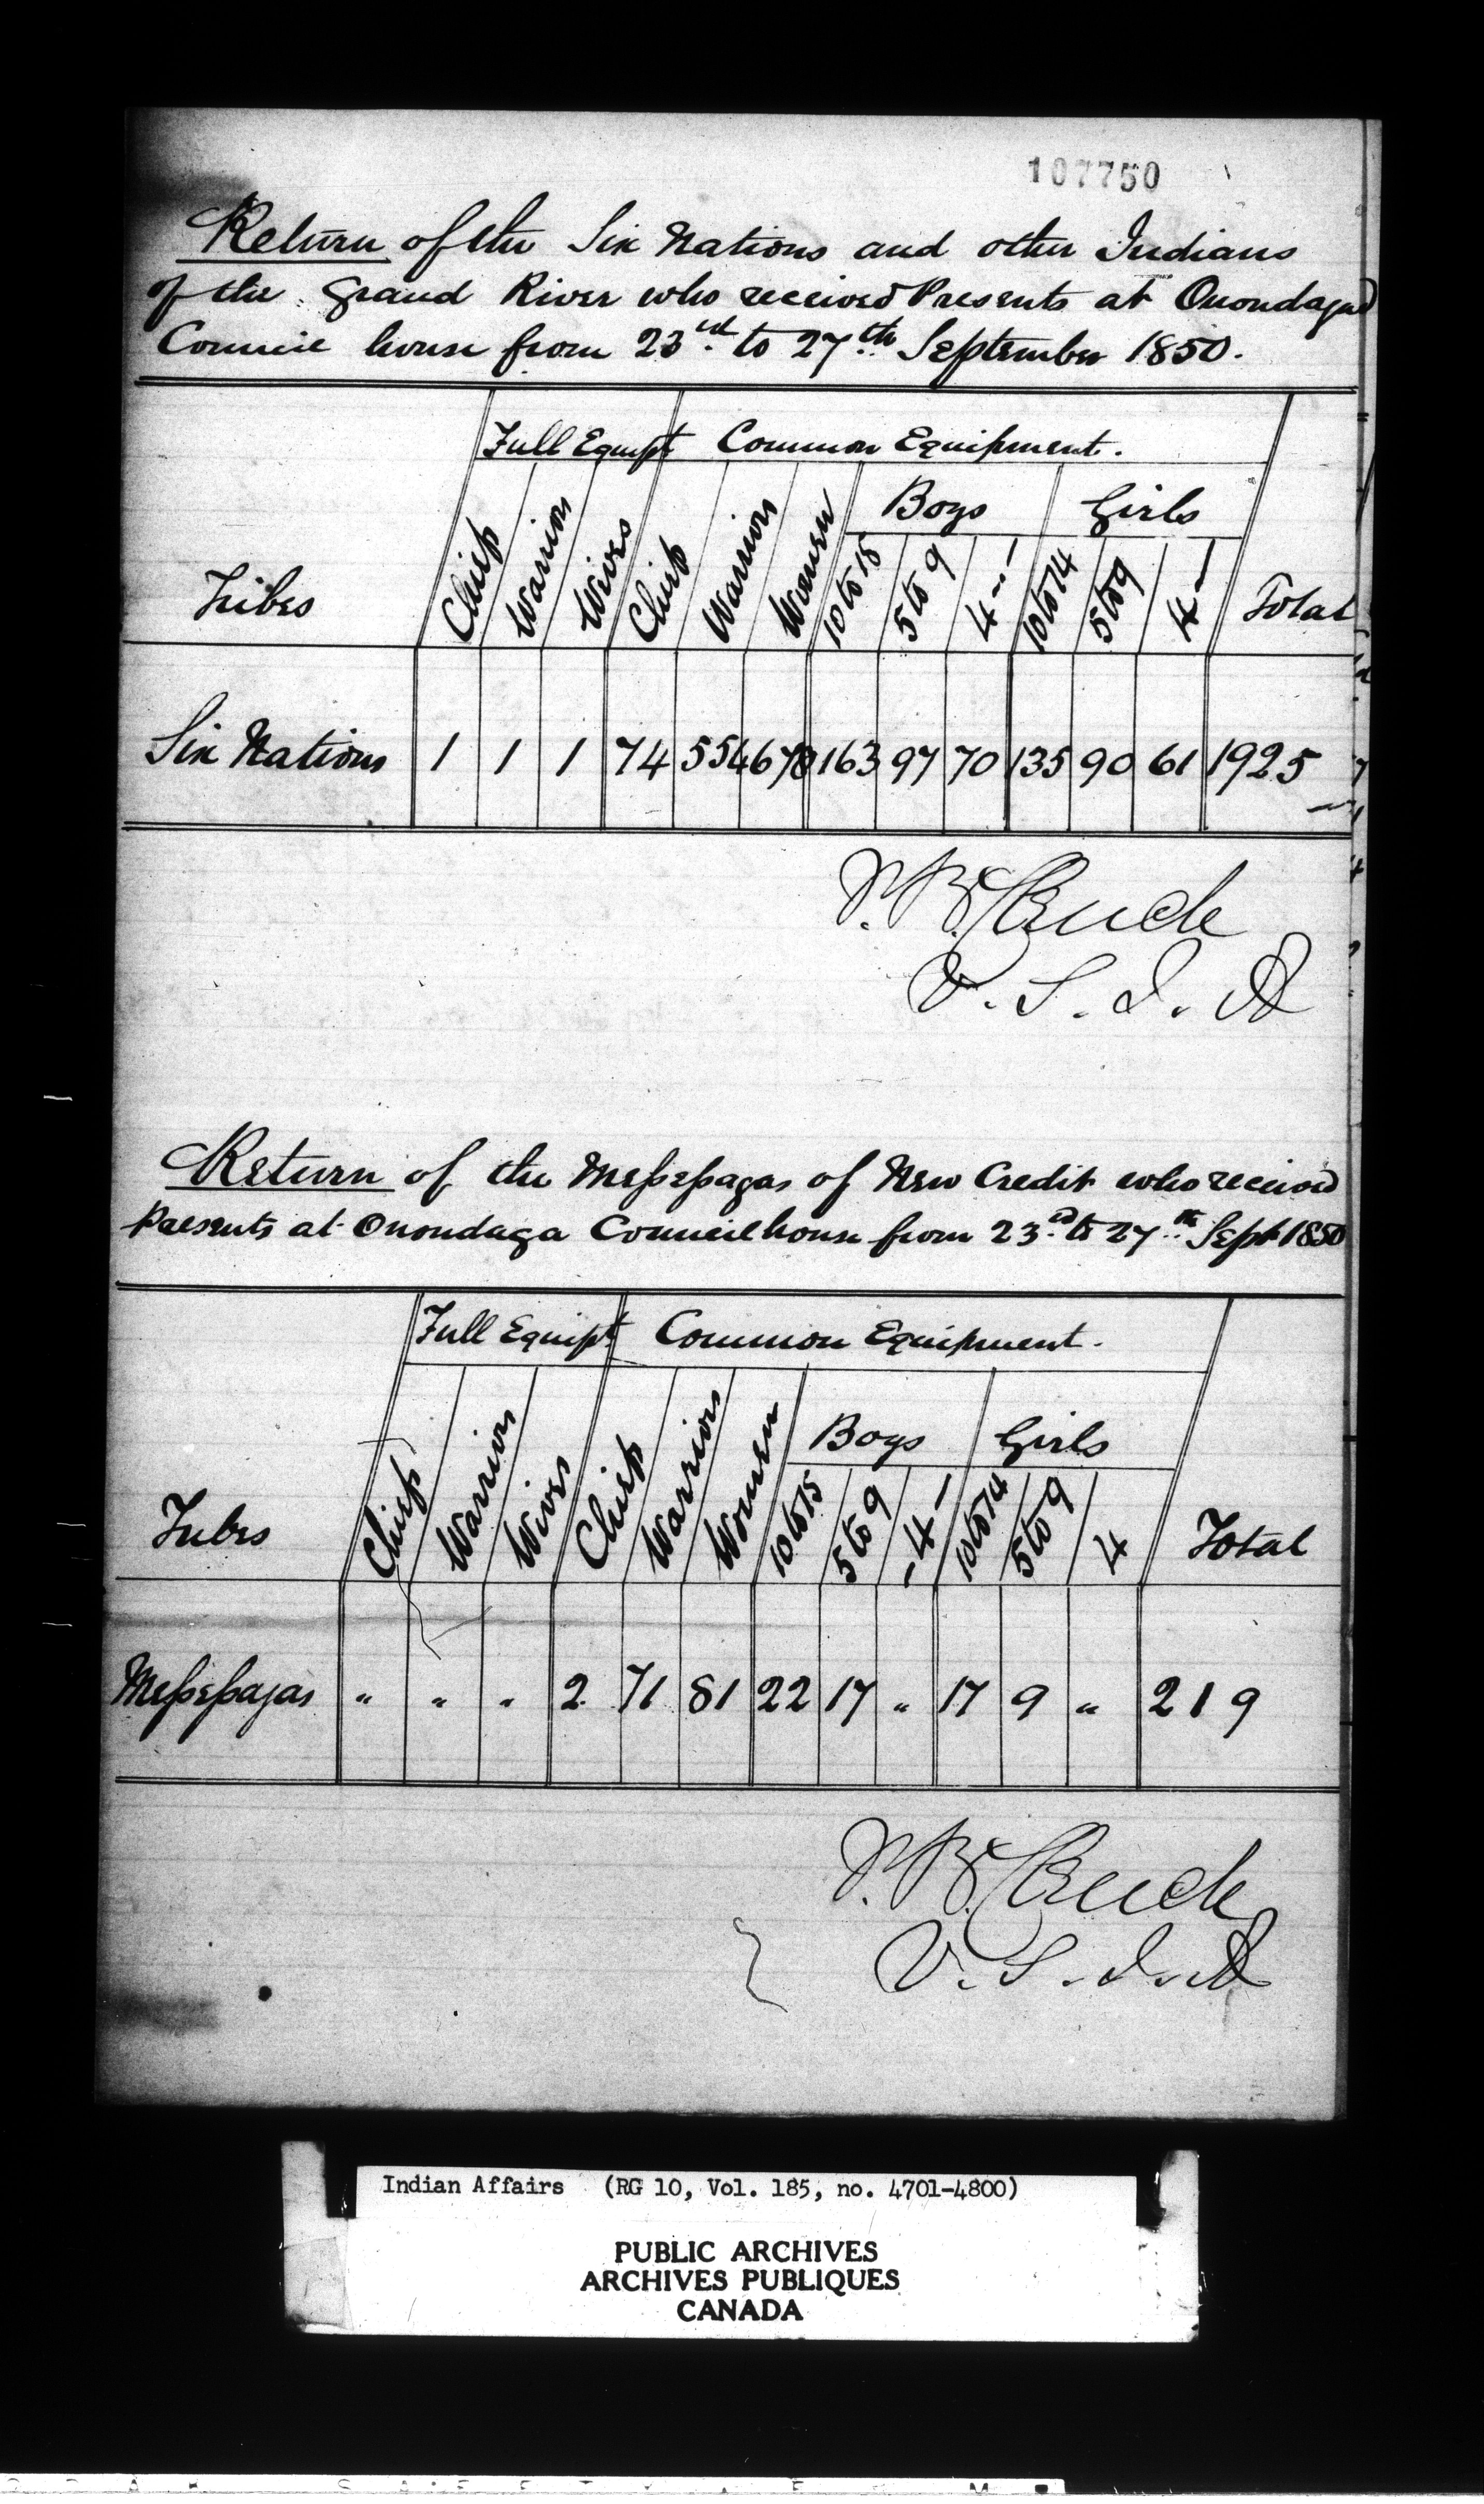 107750
Return of the Six Nations and other Indians
of the Grand River who received Presents at Onondaga
Council house from 23rd to 27th September 1850.
Full Equipt Common Equipment.
Boys Girls
Tribes Chiefs Warriors Wives Chiefs Warriors Women 10 to 15 5 to 9 4 10 to 14 5 to 9 4 Total
Six Nations 1 1 1 74 554 678 163 97 70 135 90 61 1925
V. S. I. A
Return of the Messessagas of New Credit who received
Presents at Onondaga Council house from 23rd to 27th Sept 1850
Full Equipt Common Equipment.
Boys Girls
Tribes Chiefs Warriors Wives Chiefs Warriors Women 10 to 15 5 to 9 4 10 to 14 5 to 9 4 Total
Messessagas " " " 2 71 81 22 17 " 17 9 " 219
V. S. I. A
Indian Affairs (RG 10, Vol. 185, no. 4701-4800)
PUBLIC ARCHIVES
ARCHIVES PUBLIQUES
CANADA